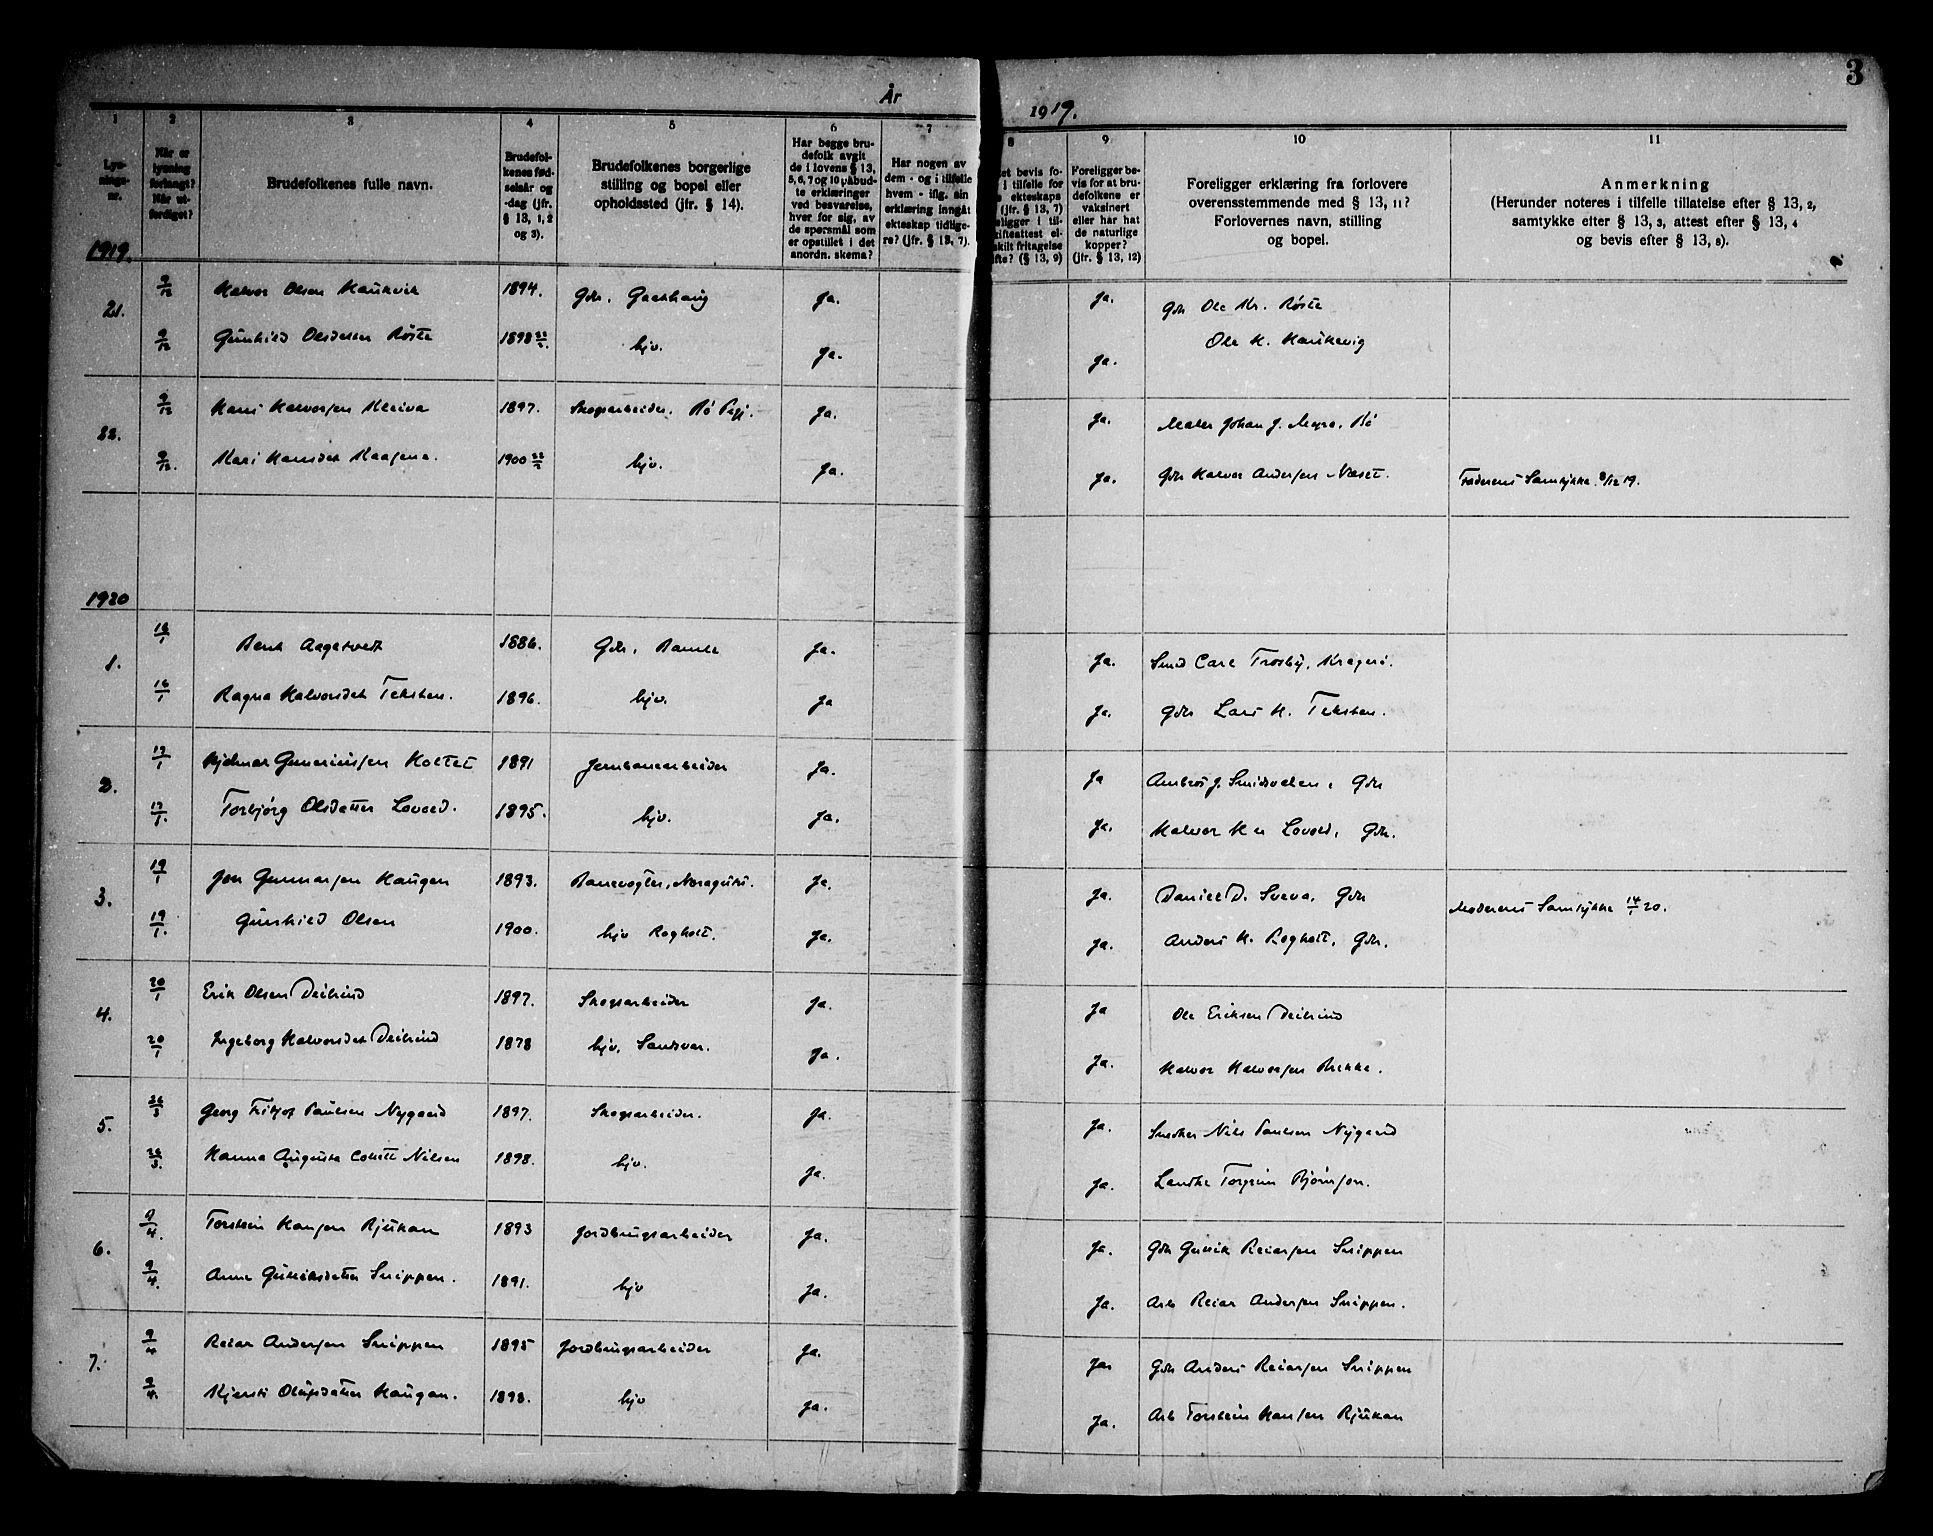 3
År 1919.
1 2 3 4 5 6 7 8 9 10 11
Lysnings-nr.
Når er lysning forlangt? Når utferdiget?
Brudefolkenes fulle navn.
Brudefolkenes fødselsår og -dag (jfr. § 13, 1, 2 og 3).
Brudefolkenes borgerlige stilling og bopel eller opholdssted (jfr. § 14).
Har begge brudefolk avgit de i lovens § 13, 5, 6, 7 og 10 påbudte erklæringer ved besvarelse, hver for sig, av de spørsmål som er opstillet i det anordn. skema?
Har nogen av dem - og i tilfelle hvem - iflg. sin erklæring inngåt ekteskap tidligere? (jfr. § 13, 7).
et bevis fo- i tilfelle for ekteskaps (jfr. § 13, 7) ligger i til- ifteattest el- skilt fritagelse fte? (§ 13, 9)
Foreligger bevis for at brudefolkene er vaksinert eller har hat de naturlige kopper? (jfr. § 13, 12)
Foreligger erklæring fra forlovere overensstemmende med § 13, 11? Forlovernes navn, stilling og bopel.
Anmerkning (Herunder noteres i tilfelle tillatelse efter § 13, 2, samtykke efter § 13, 3, attest efter § 13, 4 og bevis efter § 13, 8).
1919.
21. 9/12 Halvor Olsen Haukvik 1894. Gdr. Ja. Ja. Gdr Ole Kr. Røste
9/12 Gunhild Olsdatter Røste 1898 hjv. Ja. Ja. Ole H. Haukevig
22. 9/12 Hans Halvorsen Kleiva 1897. Skogsarbeider. Bø Ja. Ja. Maler Johan J. Myra, Bø
9/12. Kari Hansdat Haasene. 1900 hjv. Ja. Ja. Gdr Halvor Andersen Næset. Faderens Samtykke 8/12 19.
1920
1. 16/1 Bent Aagetvedt 1886. Gdr, Bamle Ja. Ja. Smed Carl Trosby, Kragerø.
16/1 Ragna Halvorsdat Teksten. 1896. hjv. Ja Ja. Gdr Lars H. Teksten.
2. 17/1 Hjelmar Guneriussen Holtet 1891 Jernbanearbeider Ja. Ja Ambros J. Smidsvalen, Gdr
17/1. Torbjørg Olsdatter Lovald. 1895. hjv. Ja. Ja. Halvor Lovald, Gdr.
3. 19/1 Jon Gunnarsen Haugen 1893. Banevogter, Noragutu. Ja. Ja. Daniel D. Sveva, Gdr Moderens Samtykke 14/1 20.
19/1. Gunhild Olsen 1900. hjv Rogholt. Ja. Ja. Anders H. Rogholt, Gdr.
4. 20/1 Erik Olsen Deilrind 1897. Skogsarbeider Ja. Ja Ole Eriksen Deilrind
20/1 Ingeborg Halvorsdat Deilrind 1878 hjv. Sandsvær. Ja. Ja. Halvor Halvorsen Brekke.
5. 26/3 Georg Fritjof Paulsen Nygaard 1897. Skogsarbeider. Ja. Ja. Snedker Nils Paulsen Nygaard
26/3. Hanna Augusta Collett Nilsen 1898. hjv. Ja. Ja. Landhr Torgrim Bjørnsen.
6. 9/4. Torstein Hansen Rjukan 1893 Jordbrugsarbeider Ja. Ja. Gdr Gullik Reiarsen Snippen
9/4. Anne Gulliksdatter Snippen. 1891. hjv Ja. Ja. Arb Reiar Andersen Snippen.
7. 9/4 Reiar Andersen Snippen 1895 Jordbrugsarbeider Ja. Ja. Gdr Anders Reiarsen Snippen
9/4. Kjersti Olufsdatter Haugan. 1898. hjv Ja. Ja. Arb Torstein Hansen Rjukan